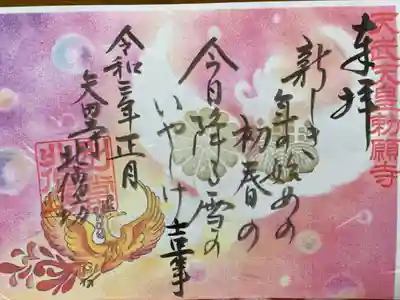 天武天皇勅願寺
奉拝
新しき
年の始めの
初春の
今日降る雪の
いやしけ吉事
令和三年正月
矢田寺北僧坊